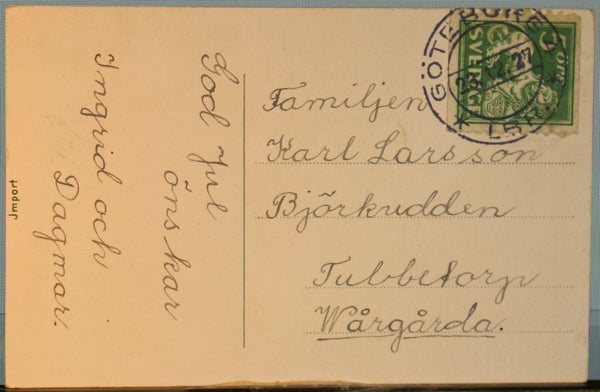 God Jul
önskar
Ingrid och
Dagmar.
Jmport
GÖTEBORG 4
12.27
LBR
5 ÖRE
SVERIGE
Familjen
Karl Larsson
Björkudden
Tubbetorp
Wårgårda.